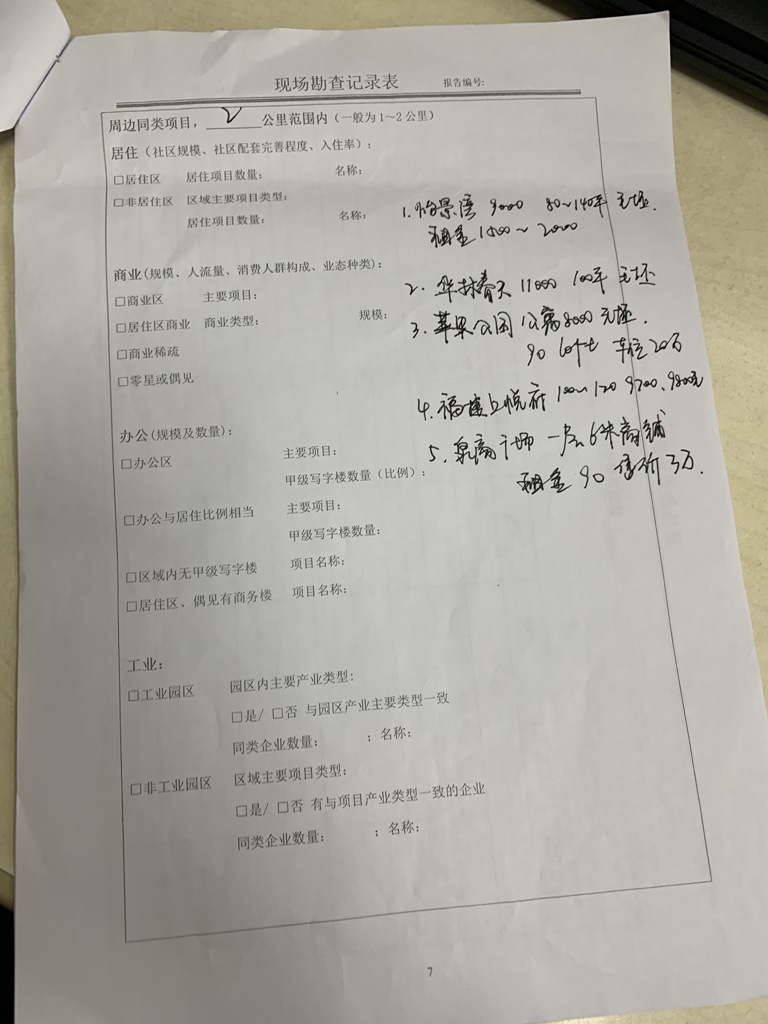 现场勘查记录表 报告编号:
周边同类项目，2公里范围内（一般为1～2公里）
居住（社区规模、社区配套完善程度、入住率）:
□居住区 居住项目数量: 名称:
□非居住区 区域主要项目类型:
居住项目数量: 名称:
1. 怡景湾 9000 80~140平 毛坯.
租金 1500~2000
商业(规模、人流量、消费人群构成、业态种类):
□商业区 主要项目:
□居住区商业 商业类型: 规模:
□商业稀疏
□零星或偶见
2. 华林春天 11000 100平 毛坯
3. 苹果公园 公寓8000 毛坯.
90 车位20万
4. 福建上悦府 100~120 9700、9800元
5. 广场 一层6米商铺
租金 90 售价 3万.
办公(规模及数量):
□办公区 主要项目:
甲级写字楼数量（比例）:
□办公与居住比例相当 主要项目:
甲级写字楼数量:
□区域内无甲级写字楼 项目名称:
□居住区、偶见有商务楼 项目名称:
工业:
□工业园区 园区内主要产业类型:
□是/ □否 与园区产业主要类型一致
同类企业数量: ；名称:
□非工业园区 区域主要项目类型:
□是/ □否 有与项目产业类型一致的企业
同类企业数量: ；名称:
7